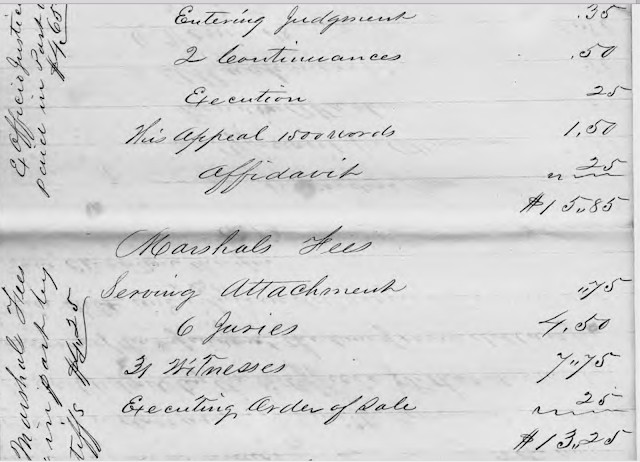 Entering Judgment .35
2 Continuances .50
Execution 25
This Appeal 1500 words 1,50
Affidavit 25
$15,85
Marshals Fees
Serving Attachment "75
6 Juries 4,50
31 Witnesses 7"75
Executing Order of Sale 25
$13,25
Ex Officio Justice
paid in Part
Marshals Fees
in part by
tiffs $4,25